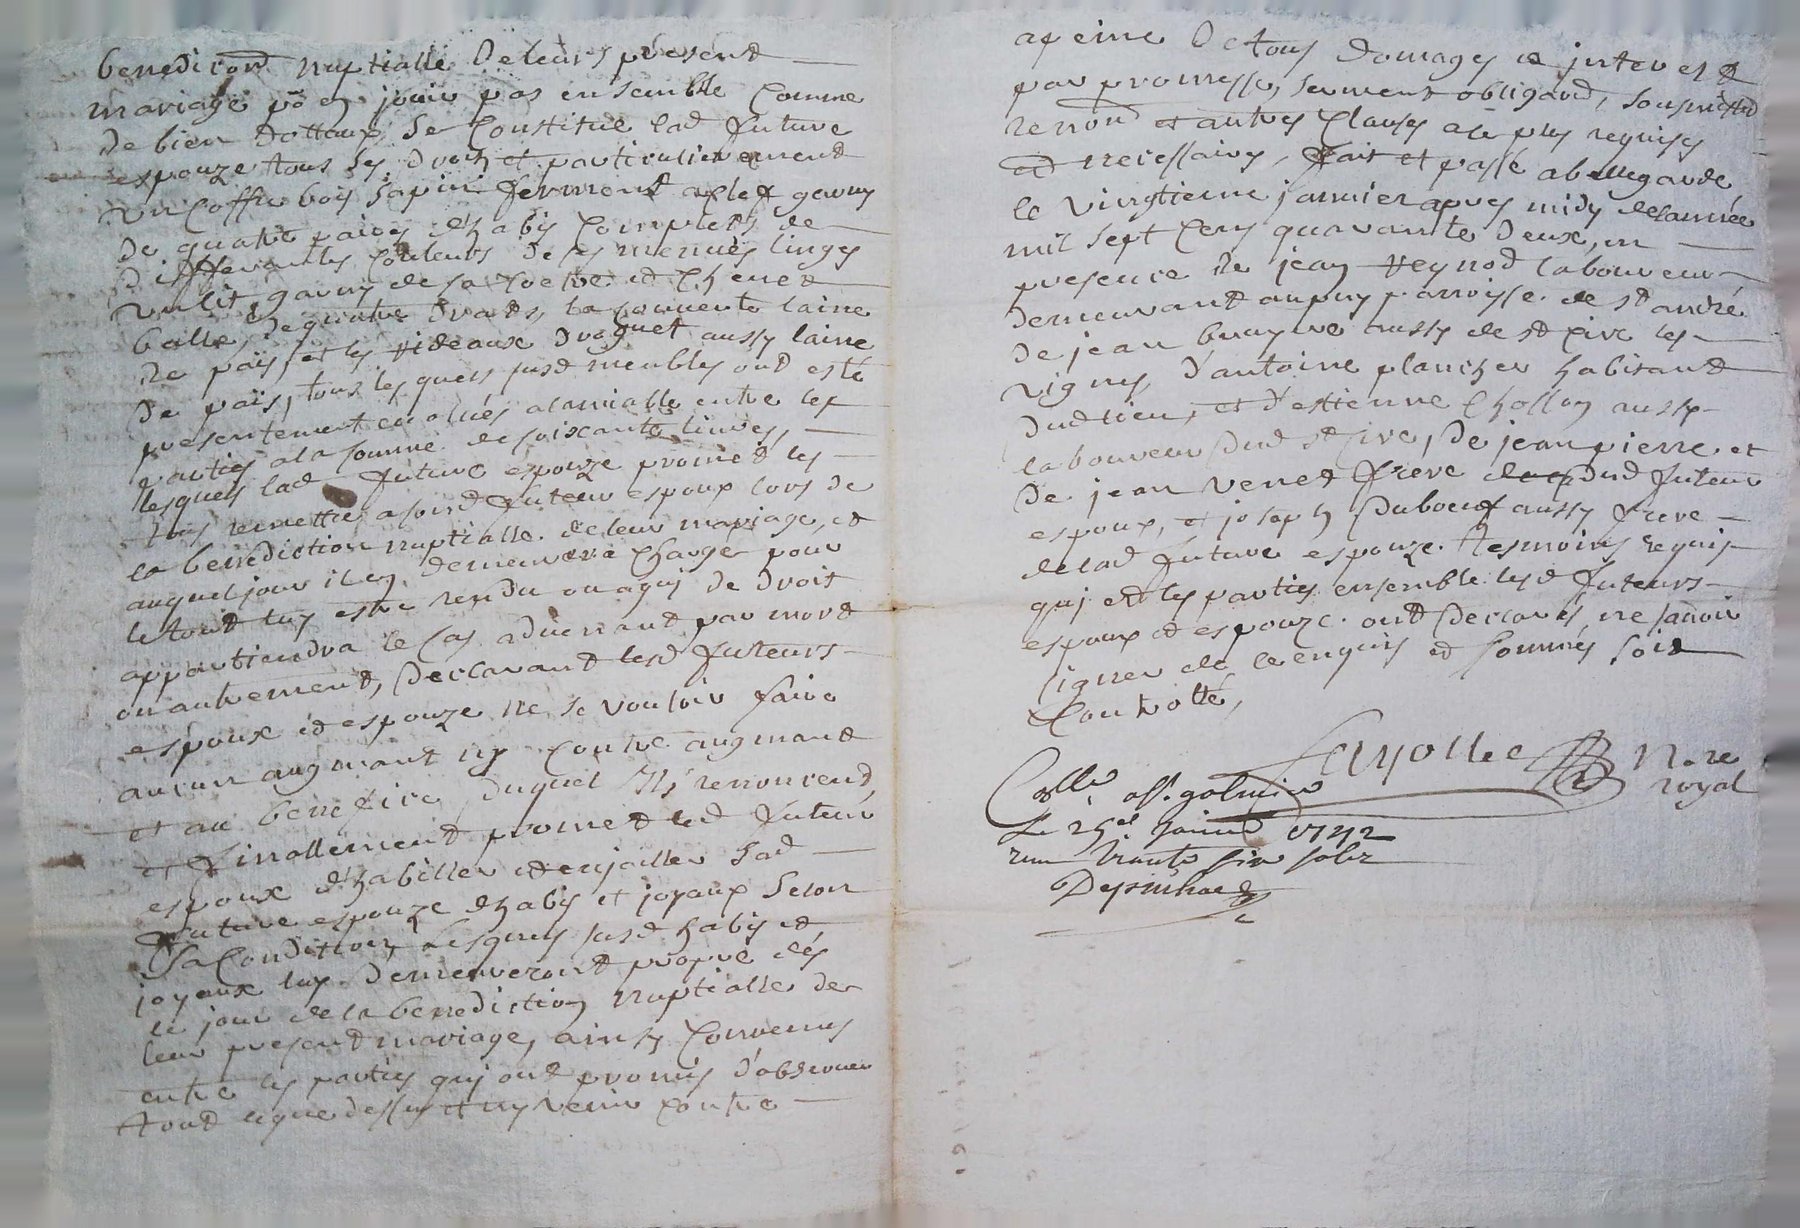 benediction nuptialle de leurs present
mariage po en jouir pas ensemble comme
de bien dottaux se constitue lad future
espouze tous ses droits et particulierement
un coffre bois sapin fermant a clef garny
de quatre paires d'habis complets de
differantes couleurs de ses menues linges
un lit garny de sa coetre et chevet
balle, de quatre draps, la couverte laine
de païs, et les rideaux droguet aussy laine
de païs, tous lesquels susd meubles ont esté
presentement evallués alamiable entre les
parties a la somme de soixante livres,
lesquels lad future espouze promet les
tous remettre a sond futeur espoux lors de
la benediction nuptialle de leur mariage, et
auquel jour il en demeurera chargé pour
le tout luy estre rendu ou a qui de droit
appartiendra le cas advenant par mort
ou autrement, declarant lesd futeurs
espoux et espouze ne se vouloir faire
aucun augmant ny contre augmant
et au benefice duquel ils renoncent,
et finallement promet led futeur
espoux d'habiller et enjoailler sad
future espouze d'habis et joyaux selon
sa condition, lesquels susd habis et
joyaux luy demeureront propre dés
le jour de la benediction nuptialle de
leur present mariage, ainsy convenus
entre les parties qui ont promis d'observer
tout ce que dessus et ny venir contre
a peine de tous domages et interest
par promesse, serment obligaõn, sousmission
renon et autres clauses a ce plus requises
et necessaires, fait et passé a bellegarde
le vingtieme janvier apres midy de lannée
mil sept cens quarante deux, en
presence de jean Reynod laboureur
demeurant au puy parroisse de st andré
de jean bruyere aussy de st cire les
vignes, d'antoine plancher habitant
dud lieu, et d'estienne Chollon aussy
laboureur dud st cire, de jean pierre et
de jean Venet frere dud futeur
espoux, et joseph Duboeuf aussy frere
de lad future espouze tesmoins requis
qui et les parties ensemble lesd futeurs
espoux et espouze ont declarés ne scavoir
signer de ce enquis et sommés soit
Controllé,
Fayolle No.re
royal
Collé a st. galmier
Le 25e janvier 1742
reçu trente six sols